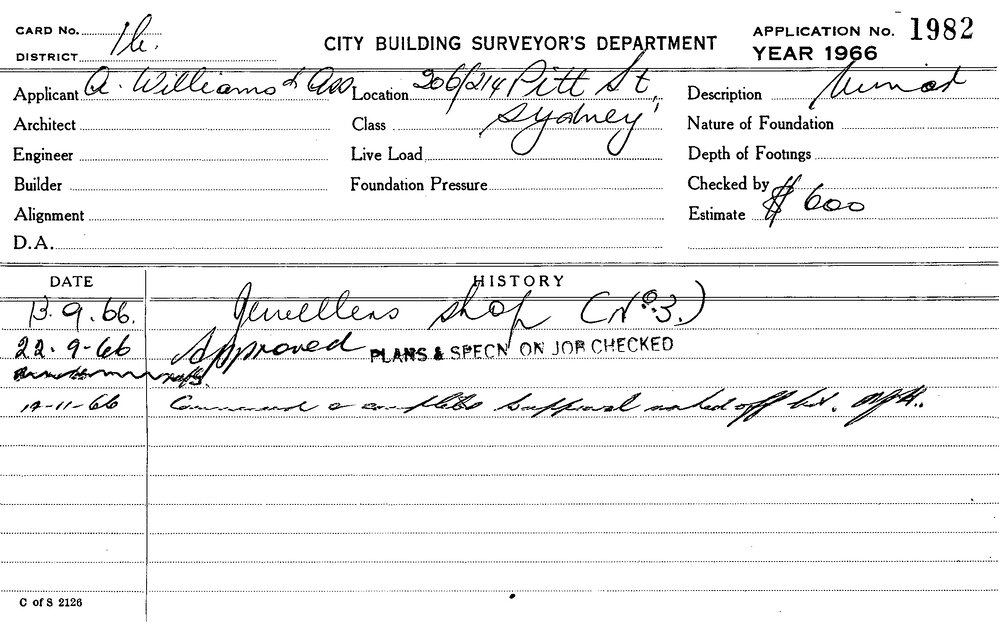 CARD No. 1b.
DISTRICT
CITY BUILDING SURVEYOR'S DEPARTMENT
APPLICATION No. 1982
YEAR 1966
Applicant A. Williams & Ass. Location 206/214 Pitt St, Description
Architect Class Sydney Nature of Foundation
Engineer Live Load Depth of Footings
Builder Foundation Pressure Checked by
Alignment Estimate $ 600
D.A.
DATE HISTORY
13.9.66. Jewellers shop (No. 3.)
22.9-66 Approved PLANS & SPECN ON JOB CHECKED
14-11-66 Commenced & complete & approval marked off
C of S 2126